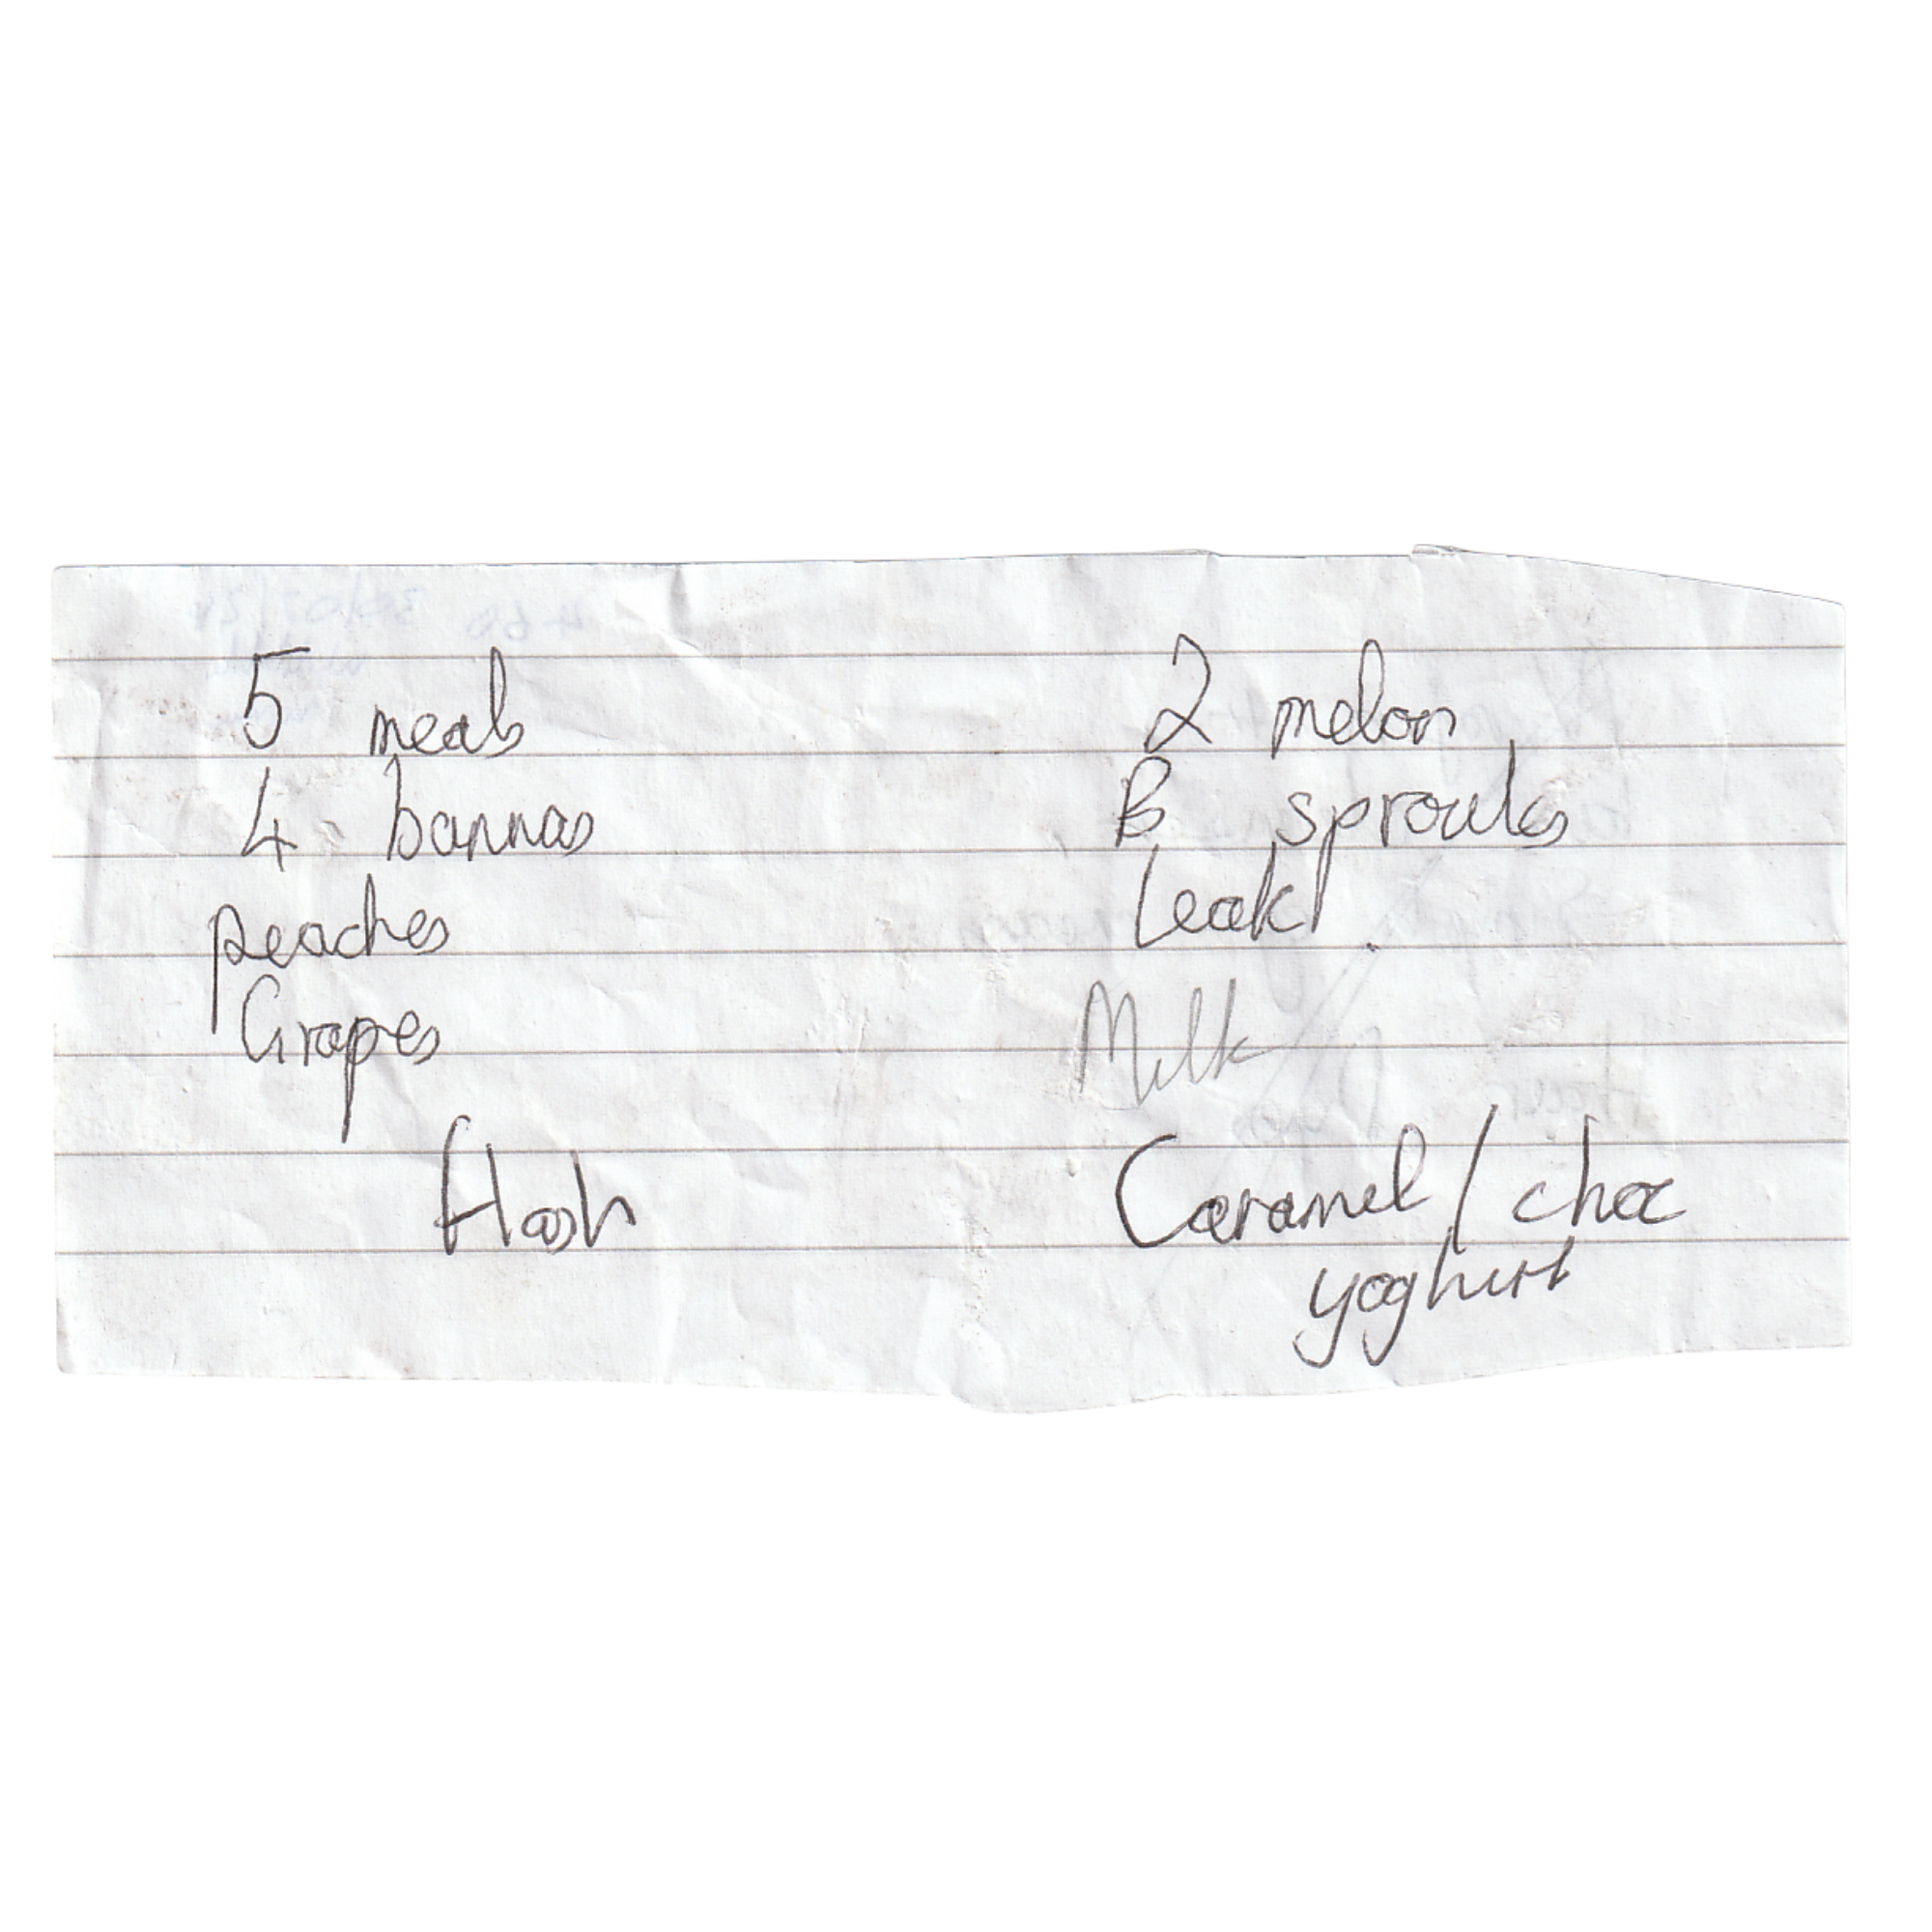 5 meals
4 bannas
peaches
Grapes
flash
2 melon
B sprouts
leak
Milk
Caramel / choc
yoghurt